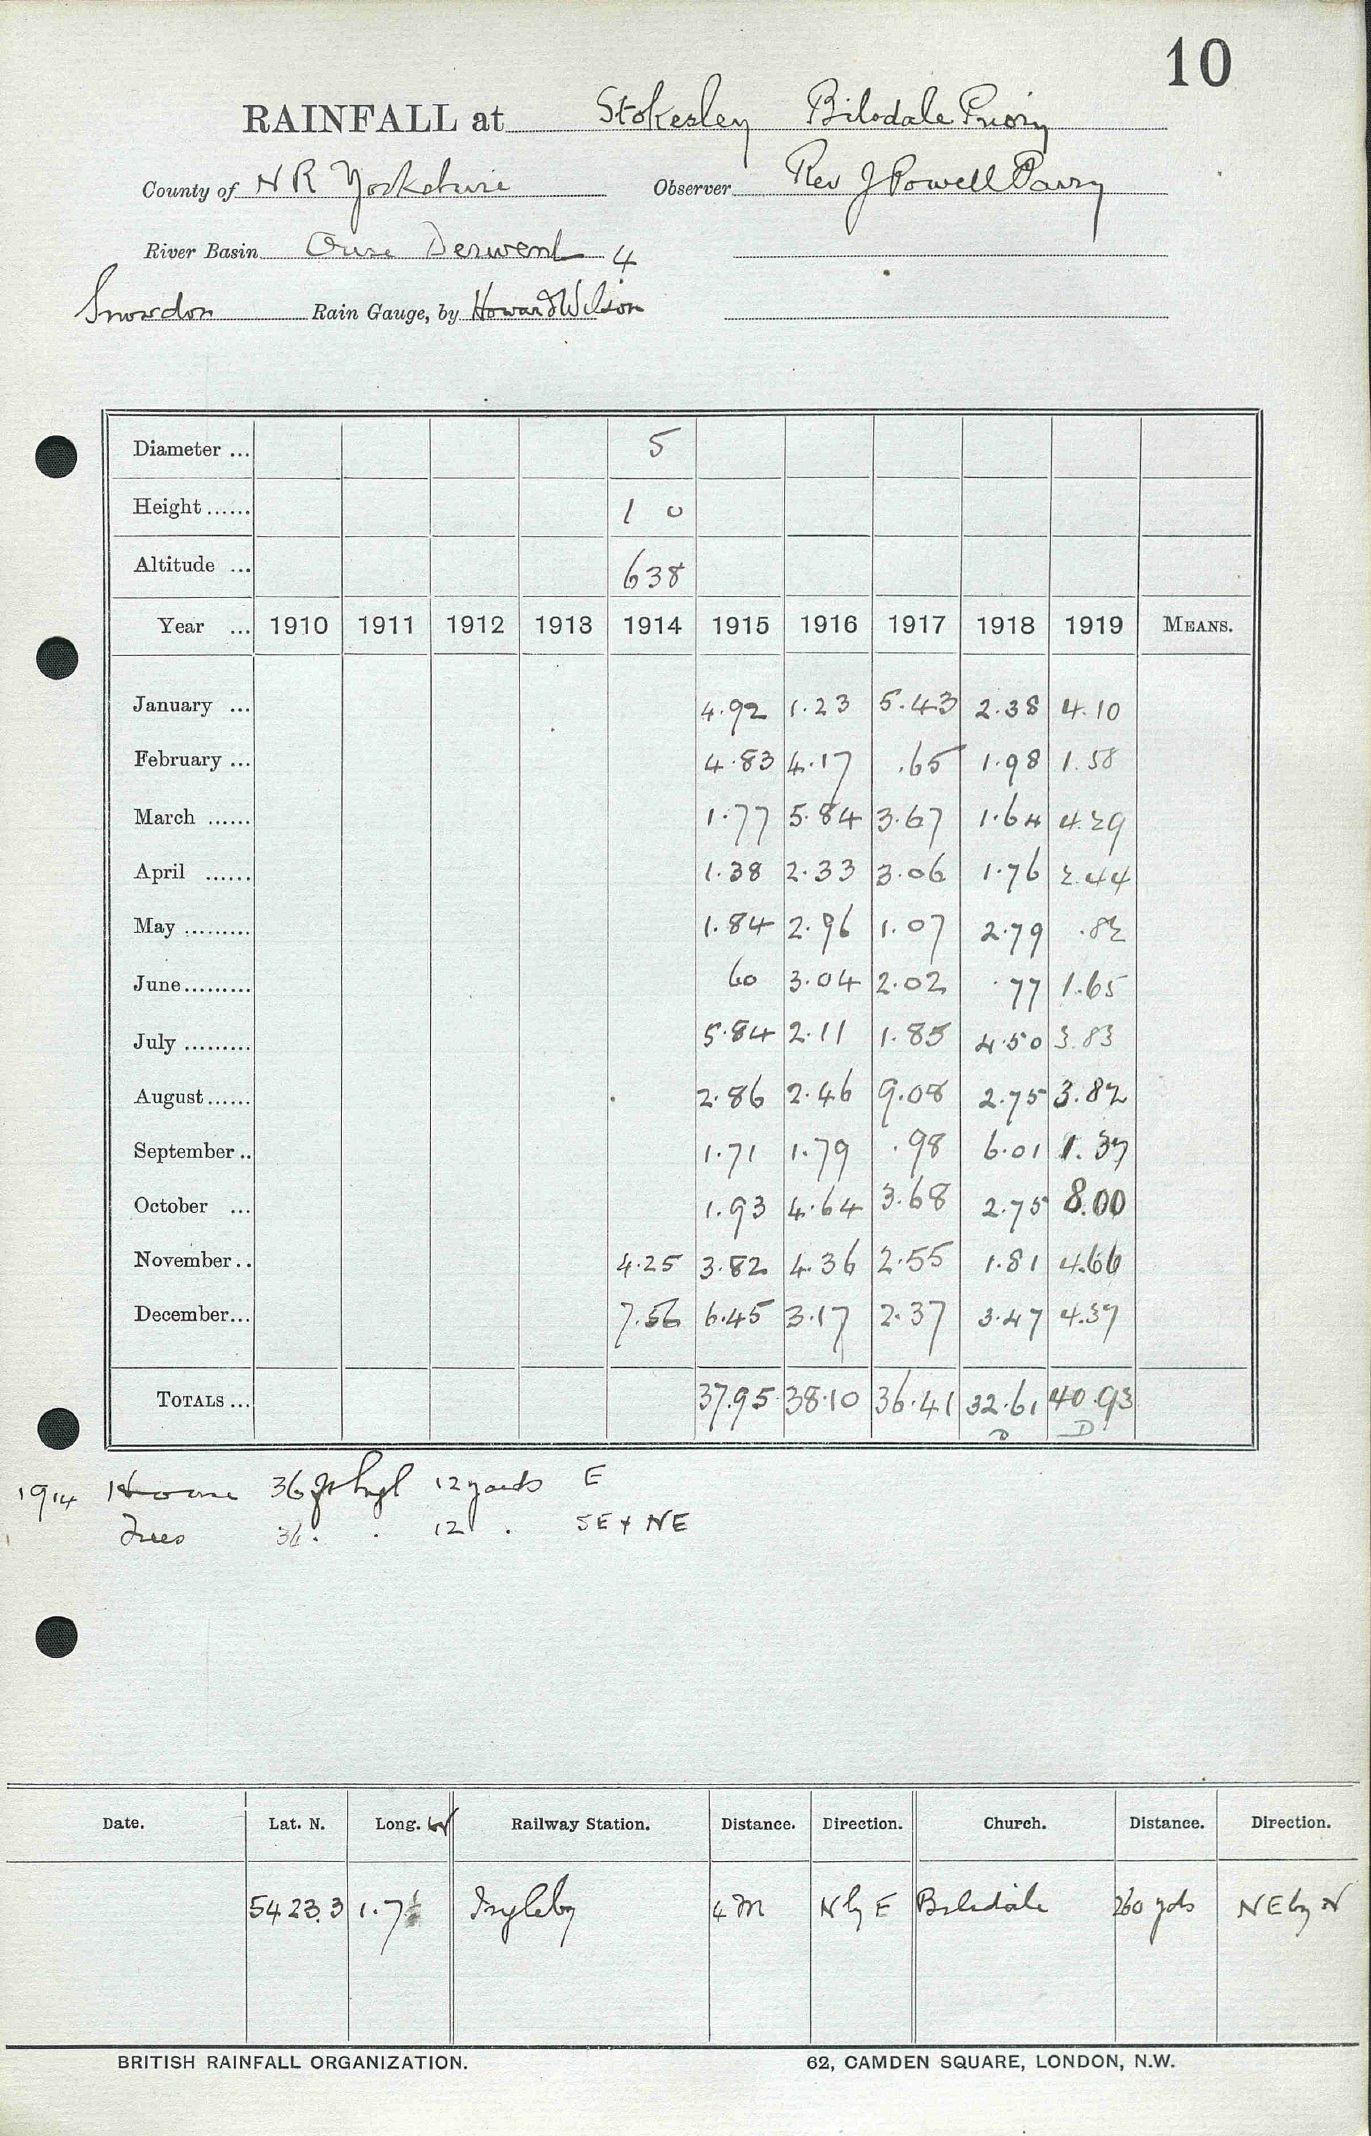 10
RAINFALL at Stokesley Bilsdale Priory
County of N R Yorkshire Observer Rev J Powell Parry
River Basin Ouse Derwent 4
Snowdon Rain Gauge, by Howard & Wilson
Diameter ... 5
Height ...... 1 0
Altitude ... 638
Year ... 1910 1911 1912 1913 1914 1915 1916 1917 1918 1919 MEANS.
January ... 4.92 1.23 5.43 2.38 4.10
February ... 4.83 4.17 .65 1.98 1.58
March ...... 1.77 5.84 3.67 1.64 4.29
April ...... 1.38 2.33 3.06 1.76 2.44
May ......... 1.84 2.96 1.07 2.79 .82
June......... 60 3.04 2.02 .77 1.65
July ......... 5.84 2.11 1.85 4.50 3.83
August...... 2.86 2.46 9.08 2.75 3.82
September .. 1.71 1.79 .98 6.01 1.37
October ... 1.93 4.64 3.68 2.75 8.00
November.. 4.25 3.82 4.36 2.55 1.81 4.66
December... 7.56 6.45 3.17 2.37 3.47 4.37
TOTALS ... 37.95 38.10 36.41 32.61 40.93
D D
1914 House 36 ft hgt 12 yards E
Trees 36 . . 12 . SE & NE
Date. Lat. N. Long. W Railway Station. Distance. Direction. Church. Distance. Direction.
54 23.3 1.7½ Ingleby 4 M N by E Bilsdale 260 yds NE by N
BRITISH RAINFALL ORGANIZATION. 62, CAMDEN SQUARE, LONDON, N.W.